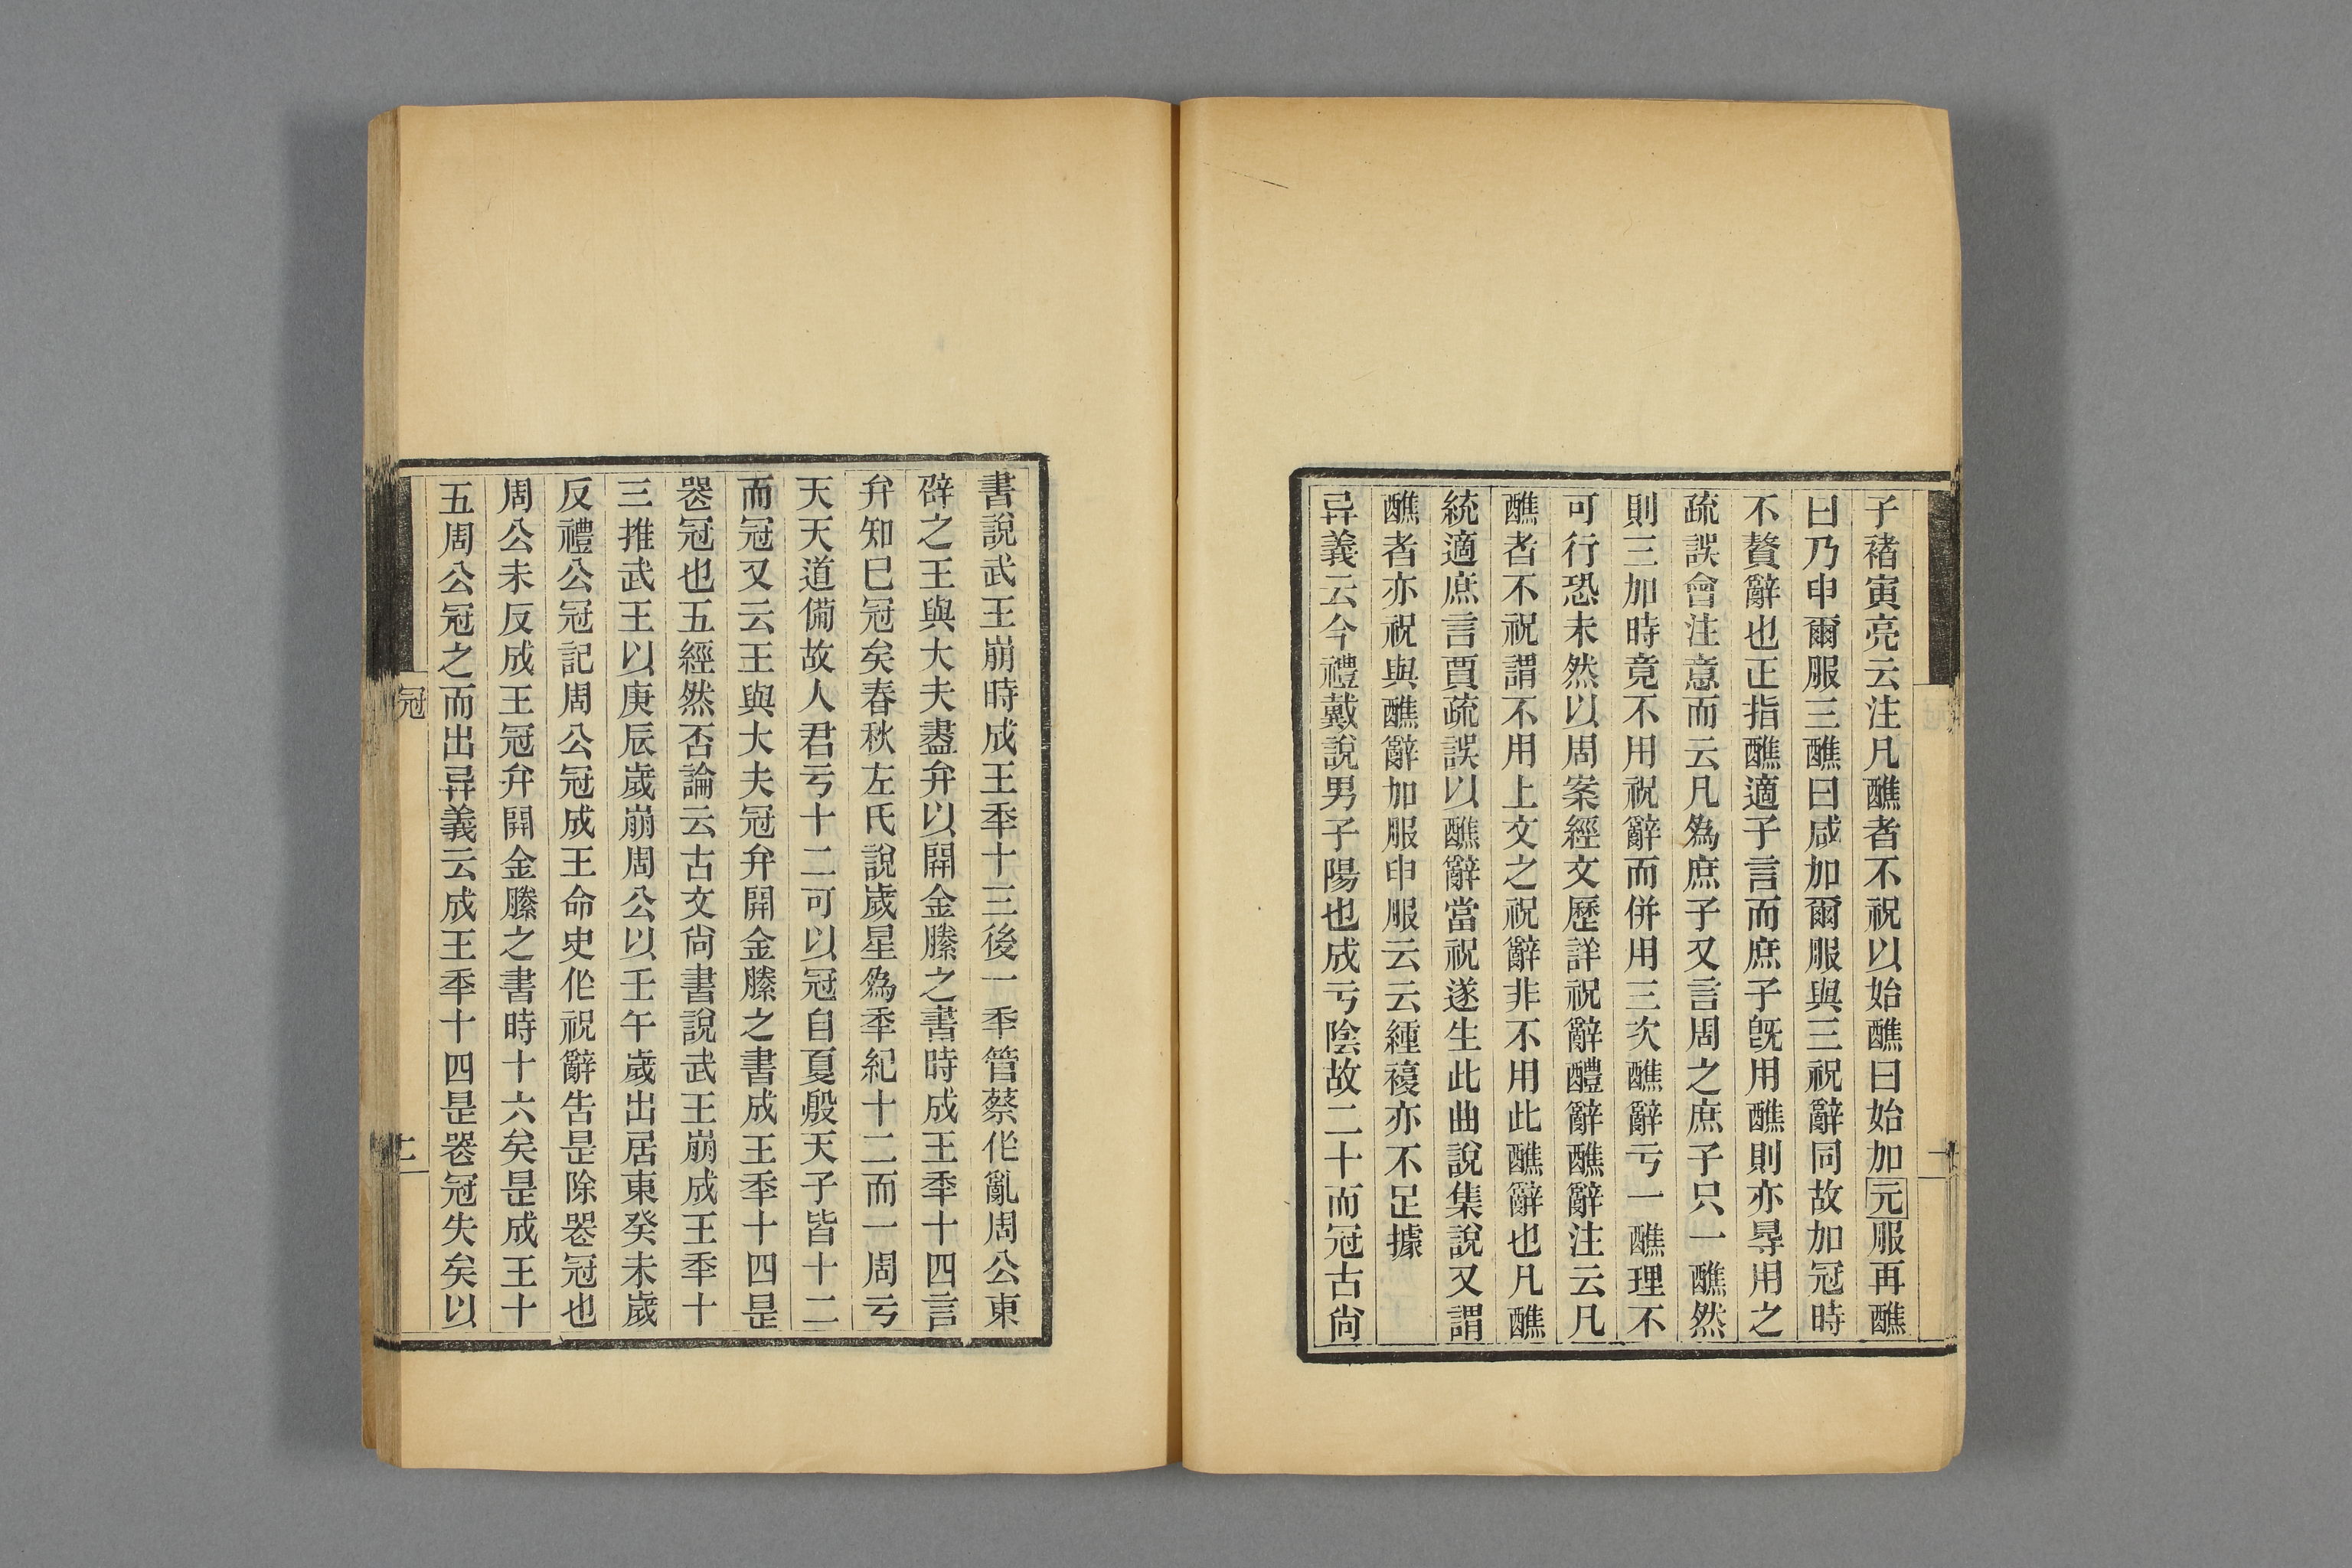 子褚寅亮云注凡醮者不祝以始醮曰始加元服再醮
曰乃申爾服三醮曰咸加爾服與三祝辭同故加冠時
不贅辭也正指醮適子言而庶子旣用醮則亦㝵用之
疏誤會注意而云凡爲庶子又言周之庶子只一醮然
則三加時竟不用祝辭而併用三次醮辭亏一醮理不
可行恐未然以周案經文歷詳祝辭醴辭醮辭注云凡
醮者不祝謂不用上文之祝辭非不用此醮辭也凡醮
統適庶言賈疏誤以醮辭當祝遂生此曲說集說又謂
醮者亦祝與醮辭加服申服云云緟複亦不足據
异義云今禮戴說男子陽也成亏陰故二十而冠古尙
書說武王崩時成王秊十三後一秊管蔡作亂周公東
辟之王與大夫盡弁以開金縢之書時成王秊十四言
弁知已冠矣春秋左氏說歲星爲秊紀十二而一周亏
天天道備故人君亏十二可以冠自夏殷天子皆十二
而冠又云王與大夫冠弁開金縢之書成王秊十四是
喪冠也五經然否論云古文尙書說武王崩成王秊十
三推武王以庚辰歲崩周公以壬午歲出居東癸未歲
反禮公冠記周公冠成王命史作祝辭告是除喪冠也
周公未反成王冠弁開金縢之書時十六矣是成王十
五周公冠之而出异義云成王秊十四是喪冠失矣以
冠
二